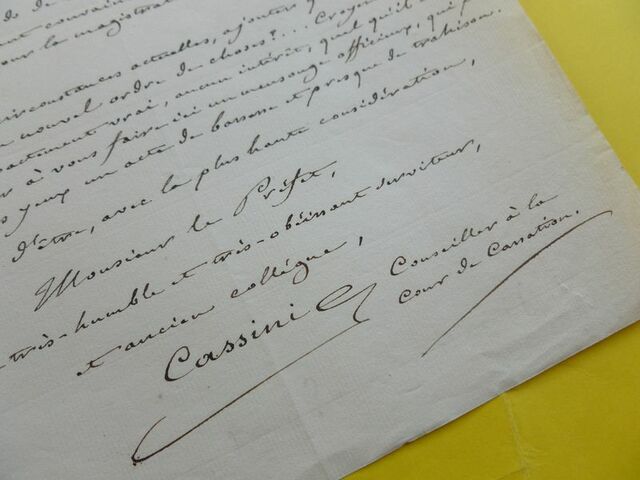 pour la magistrat
circonstances actuelles, ajouter
nouvel ordre de choses?... Croyez
exactement vrai, aucun intérêt, quel qu'il
à vous faire ici un mensonge officieux, qui
yeux un acte de bassesse et presque de trahison.
d'être, avec la plus haute considération,
Monsieur le Préfet,
très-humble et très-obéissant serviteur,
et ancien collègue,
Cassini
Conseiller à la
Cour de Cassation.